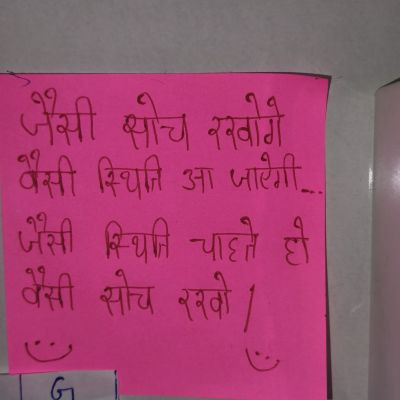 जैसी सोच रखोगे
वैसी स्थिति आ जाऐगी...
जैसी स्थिति चाहते हो
वैसी सोच रखो !
G